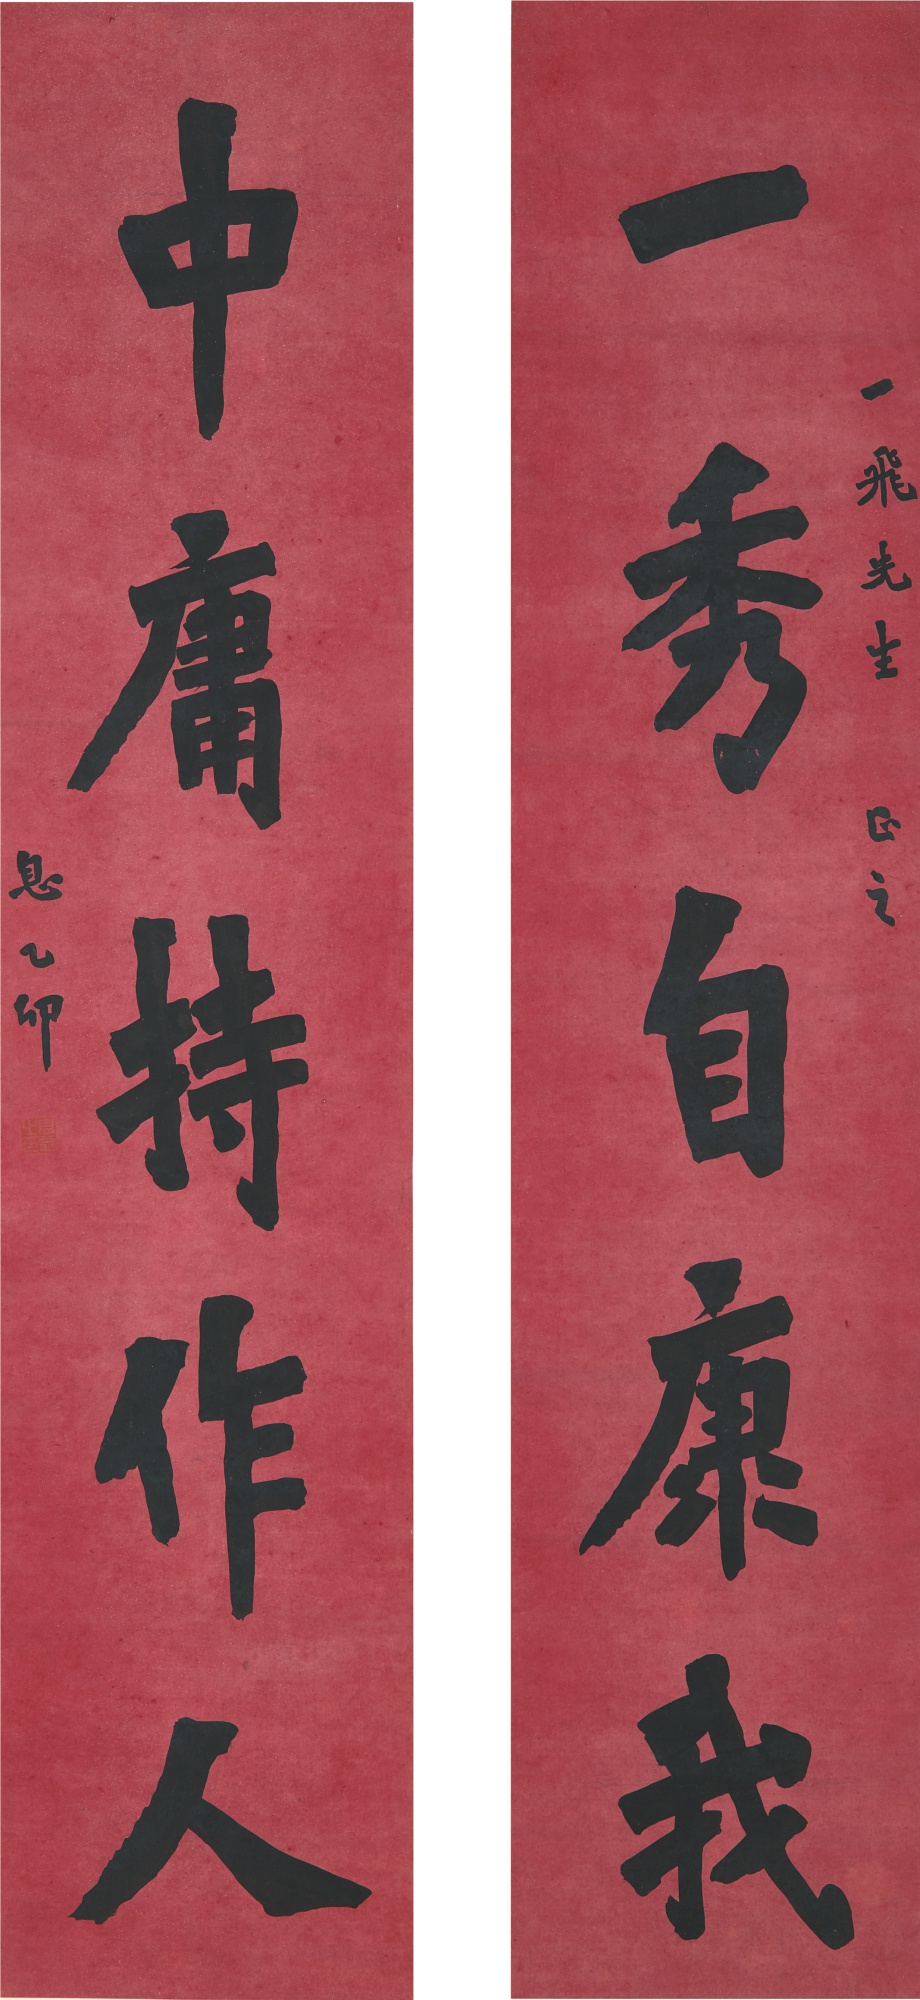 一飛先生 正之
一秀自康我
中庸持作人
息乙卯